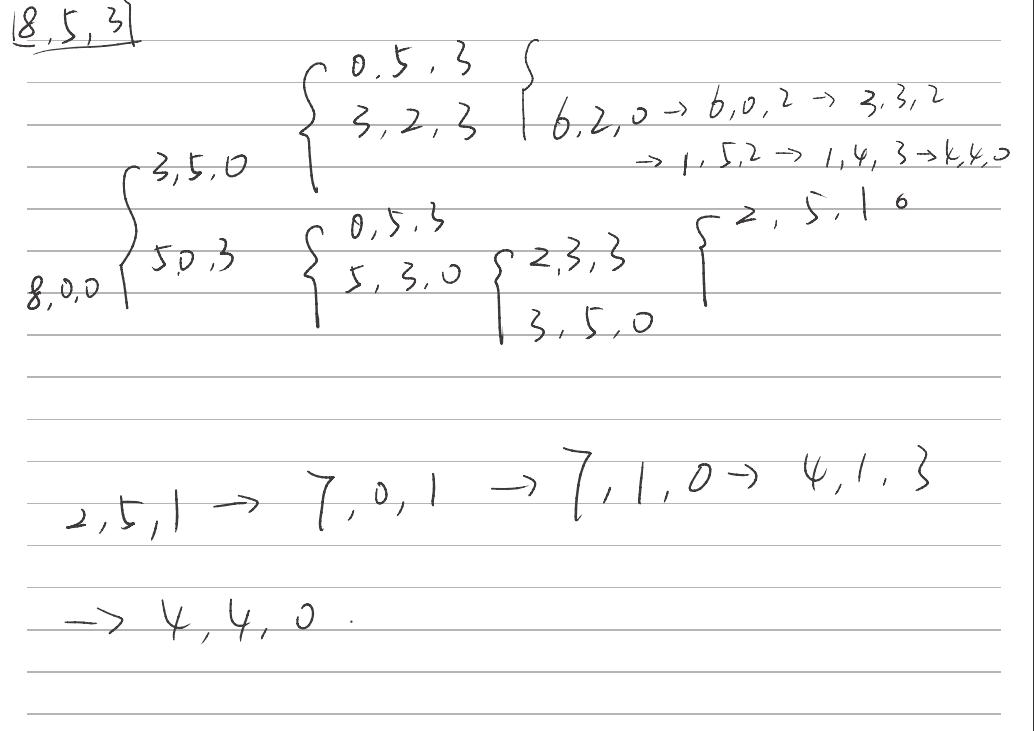 8,5,3
0.5.3
3,2,3
6,2,0→6,0,2→3.3,2
→1,5,2→1,4,3→4,4,0
3,5,0
5,0,3
8,0,0
0,5,3
5,3,0
2,3,3
3,5,0
2,5,1
2,5,1→7,0,1→7,1,0→4,1,3
→4,4,0.